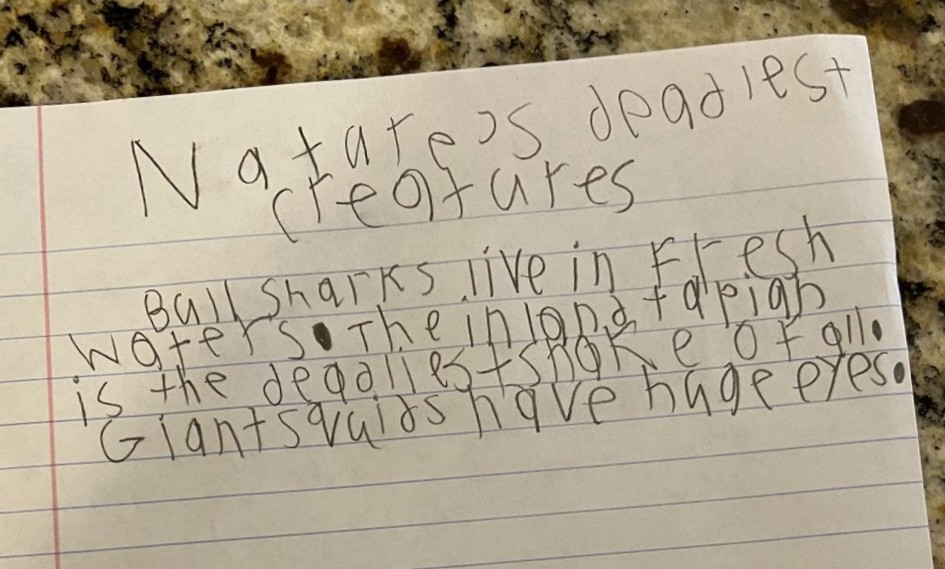 Nature's deadliest
creatures
Bull sharks live in Fresh
waters. The inland taipan
is the deadliest snake of all.
Giant squids have huge eyes.